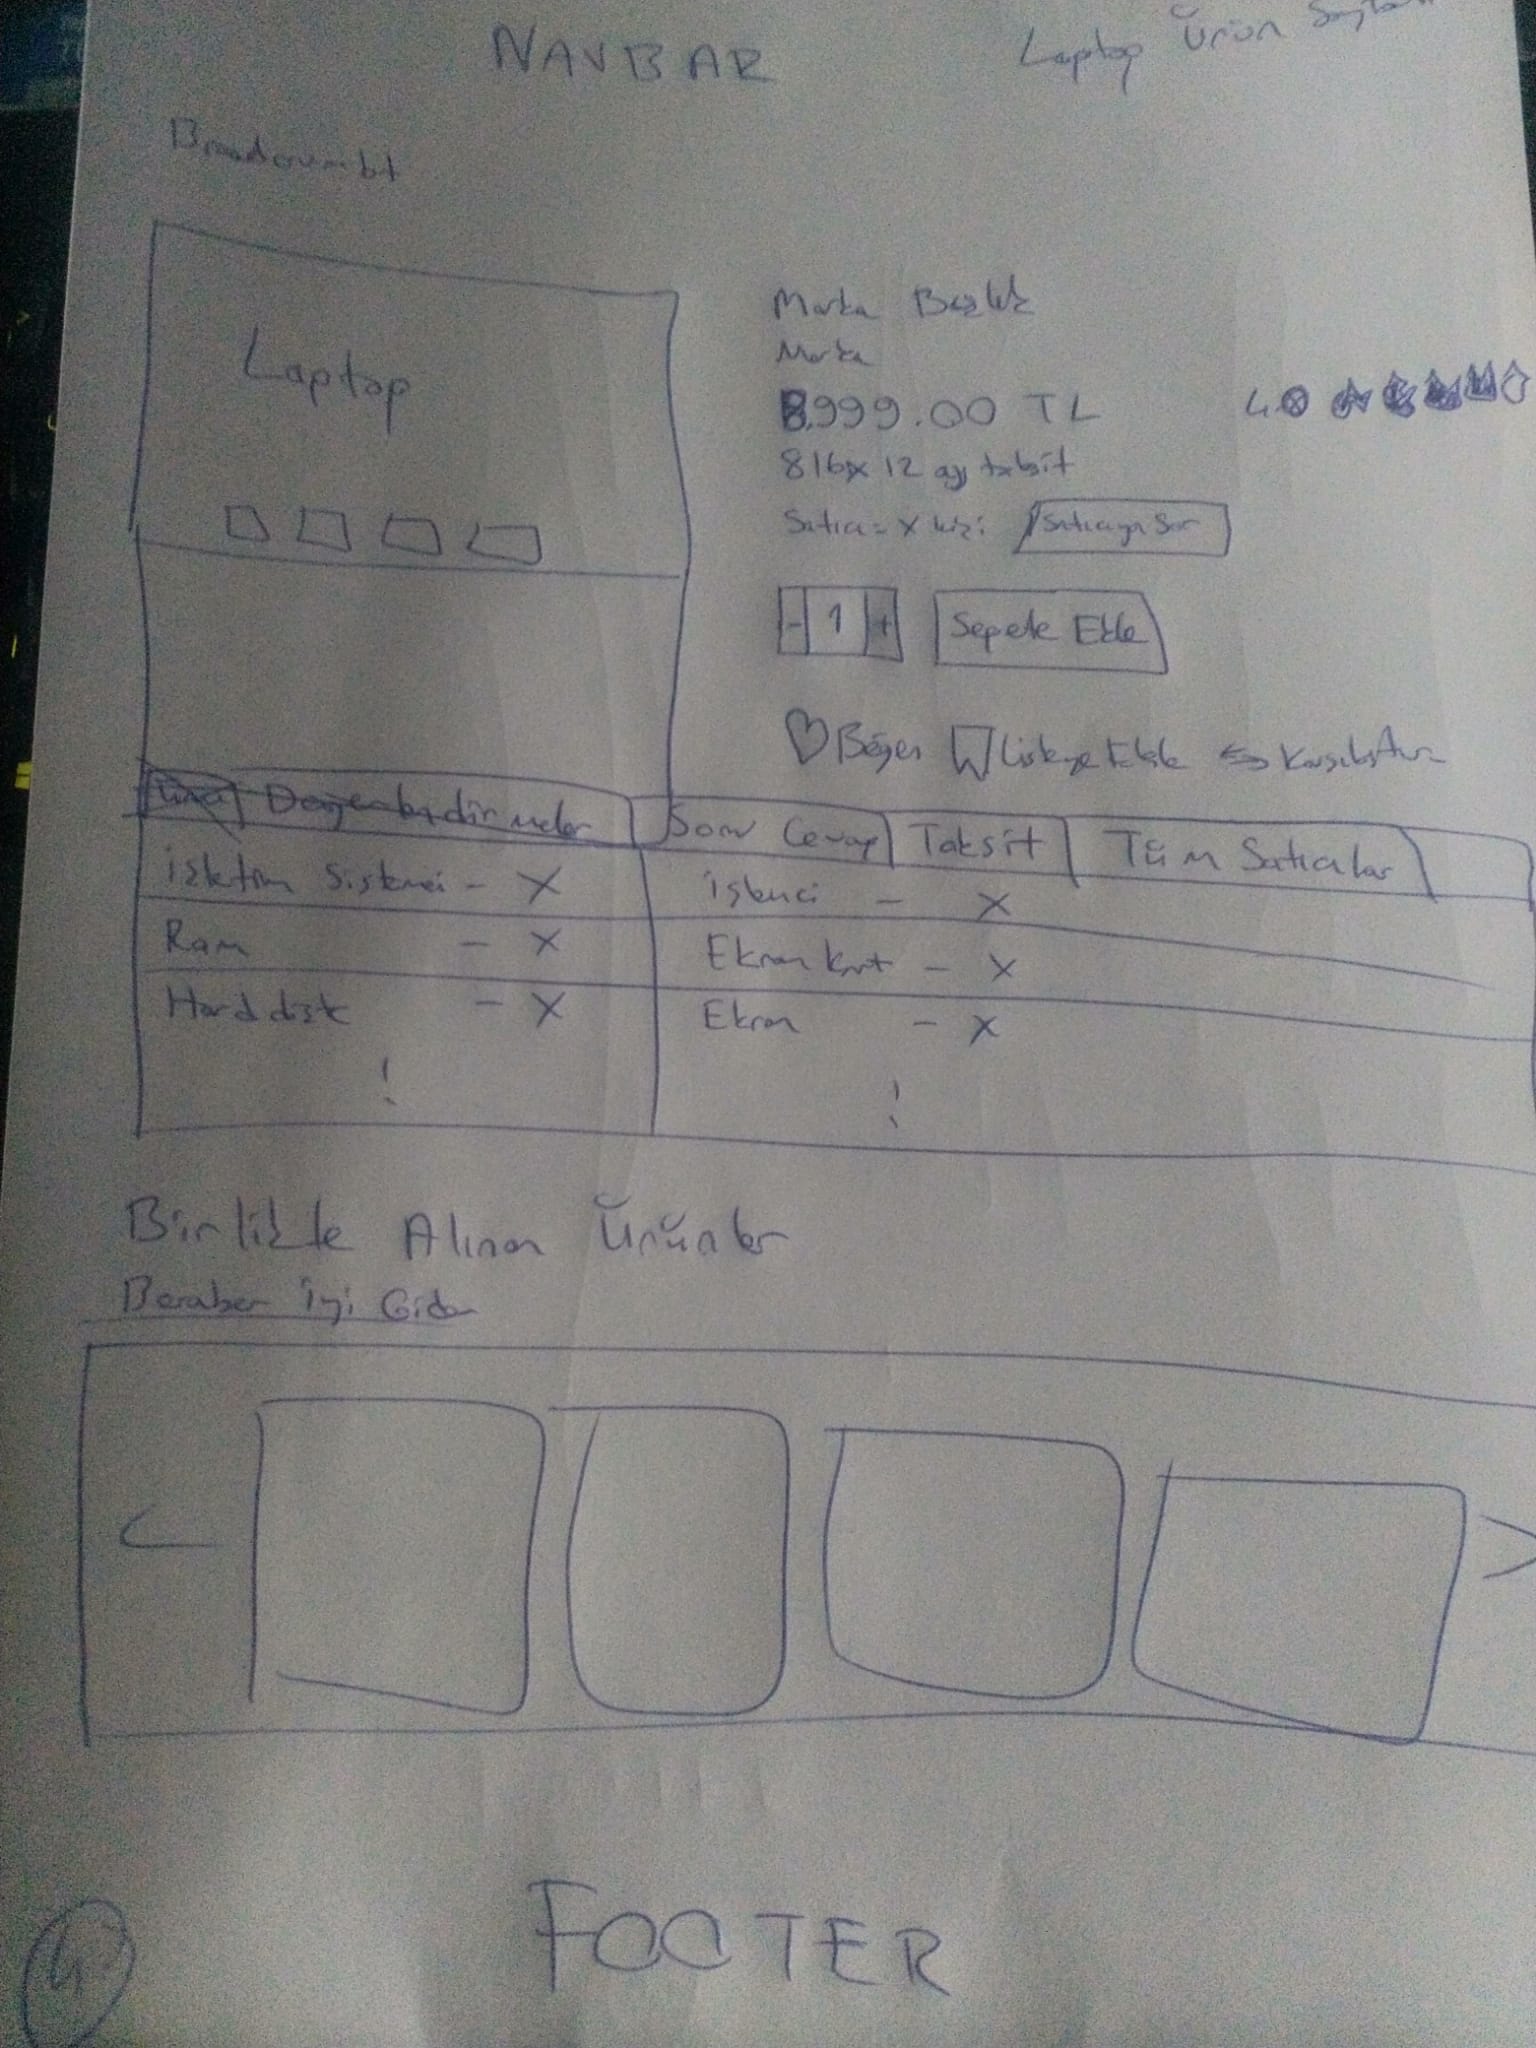 NAVBAR
Laptop Ürün Sayfası
Breadcrumbt
Laptop
Marka Başlık
Marka
8.999.00 TL
4.0
816x 12 ay taksit
Satıcı = X kişi
Satıcıya Sor
- 1 +
Sepete Ekle
Beğen
Listeye Ekle
Karşılaştır
Değerlendirmeler
Soru Cevap
Taksit
Tüm Satıcılar
İşletim Sistemi - X
İşlemci - X
Ram - X
Ekran Kartı - X
Hard disk - X
Ekran - X
Birlikte Alınan Ürünler
Beraber İyi Gider
< >
FOOTER
4